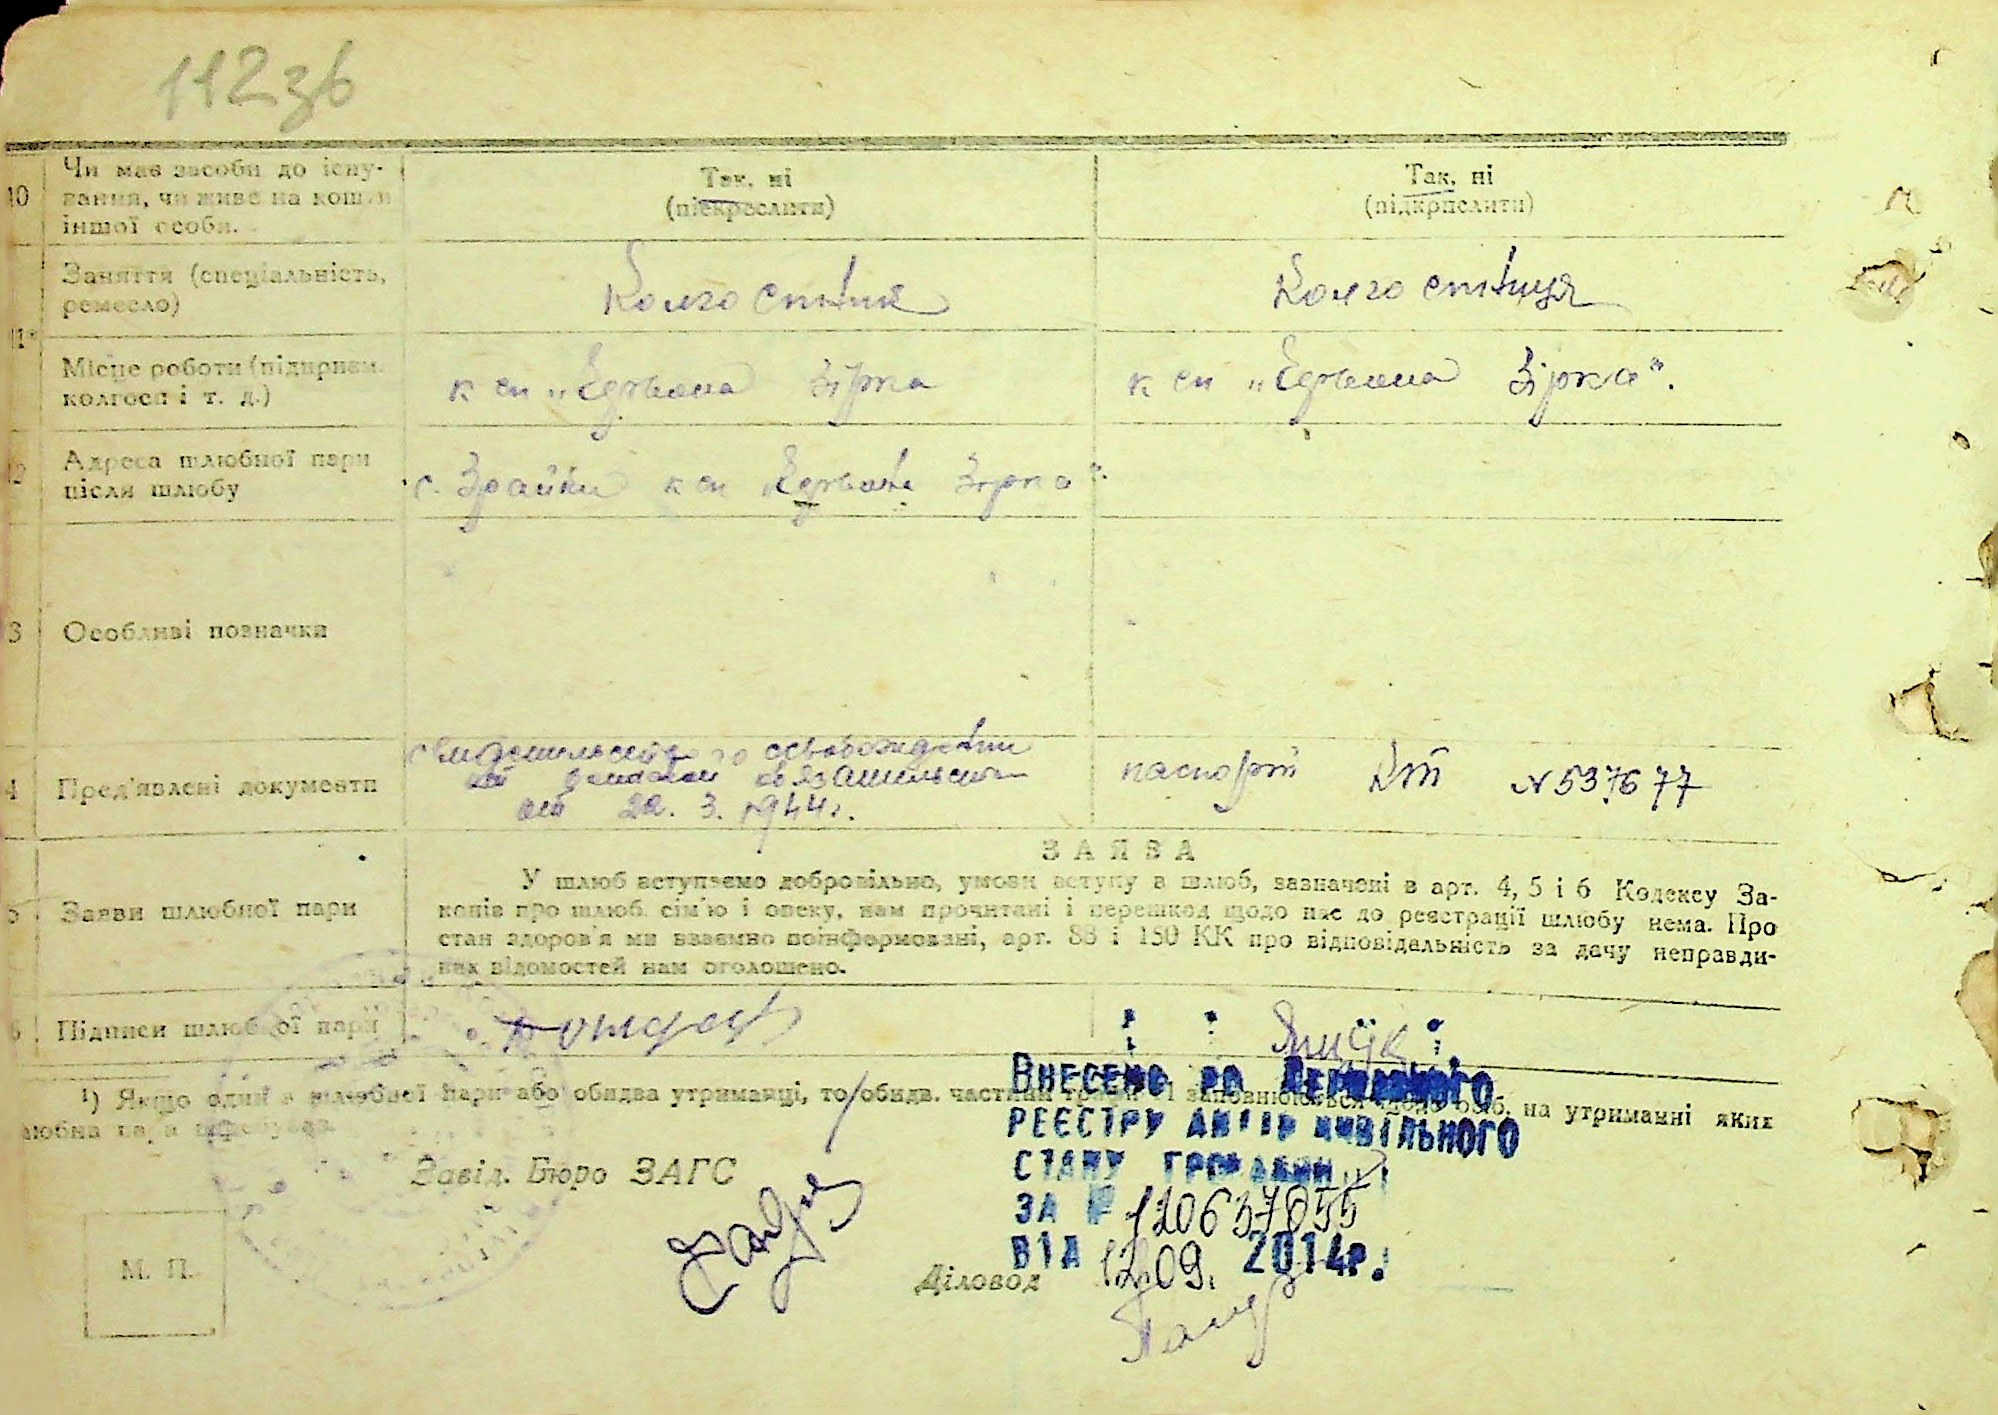 112зв
10
Чи має засоби до існу-
вання, чи живе на кошти
іншої особи.
Так, ні
(підкреслити)
Так, ні
(підкреслити)
11
Заняття (спеціальність,
ремесло)
Колгоспник
Колгоспниця
Місце роботи (підприєм.
колгосп і т. д.)
к сп „Червона Зірка
к сп „Червона Зірка".
2
Адреса шлюбної пари
після шлюбу
с. Зрайки к сп „Червона Зірка".
3
Особливі позначки
4
Пред'явлені документи
свидетельство о освобождении
от воинской обязательности
от 22. 3. 1944г.
паспорт № 537677
ЗАЯВА
5
Заяви шлюбної пари
У шлюб вступаємо добровільно, умови вступу в шлюб, зазначені в арт. 4, 5 і 6 Кодексу За-
конів про шлюб, сім'ю і опеку, нам прочитані і перешкод щодо нас до реєстрації шлюбу нема. Про
стан здоров'я ми взаємно поінформовані, арт. 88 і 150 КК про відповідальність за дачу неправди-
вих відомостей нам оголошено.
6
Підписи шлюбної пари
Ящук
¹) Якщо один з шлюбної пари або обидва утриманці, то обидв. частини графи 11 заповнюються щодо осіб, на утриманні яких
шлюбна пара перебуває.
Внесено до Державного
реєстру актів цивільного
стану громадян
за № 120637855
від 12.09. 2014р.
Завід. Бюро ЗАГС
М. П.
Діловод